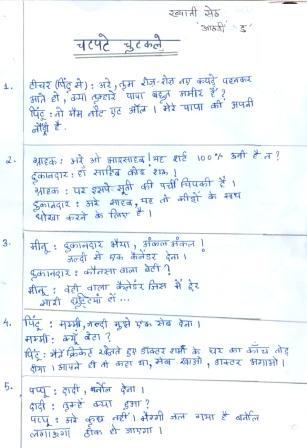 ख्याती सेठ
'आठवी' 'ड'
चटपटे चुटकले
1. टीचर (पिंटू से) : अरे, तुम रोज-रोज नए कपड़े पहनकर
आते हो, क्या तुम्हारे पापा बहुत अमीर हैं?
पिंटू : नो मैम नॉट एट ऑल। मेरे पापा की अपनी
है।
2. ग्राहक : अरे ओ भाइसाहब! यह शर्ट 100% ऊनी है न?
दुकानदार : हाँ साहिब कोई शक।
ग्राहक : पर इसपे सूती की पर्ची चिपकी है।
दुकानदार : अरे साहब, यह तो कीड़ों के साथ
धोखा करने के लिए है।
3. मीनू : दुकानदार भैया, अंकल अंकल!
जल्दी से एक कैलेंडर देना।
दुकानदार : कौनसा वाला बेटी?
मीनू : वही वाला कैलेंडर जिस में ढेर
सारी छुट्टियाँ हों ...
4. पिंटू : मम्मी, जल्दी मुझे एक सेब देना।
मम्मी : क्यूँ बेटा?
पिंटू : मैंने क्रिकेट खेलते हुए डाक्टर शर्मा के घर का काँच तोड़
दीया। आपने ही तो कहा था, सेब खाओ, डाक्टर भगाओ।
5. पप्पू : दादी, बर्नोल देना।
दादी : तुम्हे क्या हुआ?
पप्पू : अरे कुछ नहीं। मैम्मी जल गया है बर्नोल
लगाऊंगा ठीक हो जाएगा।